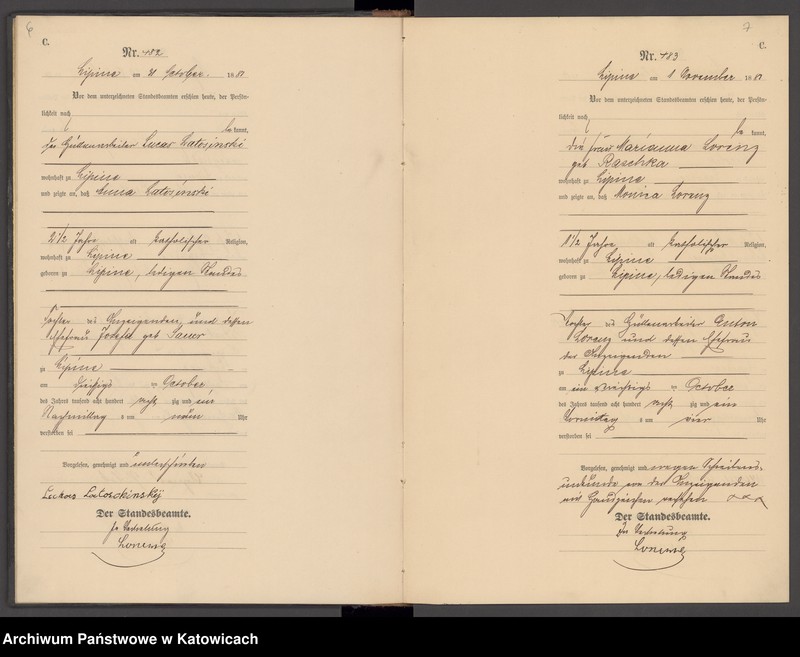 6
C.
Nr. 182
Lipine am 31 October 1881
Vor dem unterzeichneten Standesbeamten erschien heute, der Persön-
lichkeit nach
be kannt,
der Hüttenarbeiter Lucas Latosinski
wohnhaft zu Lipine
und zeigte an, daß Anna Latosinski
2 1/2 Jahre alt katholischer Religion,
wohnhaft zu Lipine
geboren zu Lipine, ledigen Standes
Tochter des Anzeigenden und dessen
Ehefrau Josefa geb
zu Lipine
am October
des Jahres tausend acht hundert acht zig und ein
Nachmittag s um neun Uhr
verstorben sei
Vorgelesen, genehmigt und unterschrieben
Lukas Latoschinskÿ
Der Standesbeamte.
In Vertretung
7
C.
Nr. 183
Lipine am 1 November 1881
Vor dem unterzeichneten Standesbeamten erschien heute, der Persön-
lichkeit nach
be kannt,
die Frau Marianna Lorenz
geb Raschka
wohnhaft zu Lipine
und zeigte an, daß Monica Lorenz
1 1/2 Jahre alt katholischer Religion,
wohnhaft zu Lipine
geboren zu Lipine, ledigen Standes
Tochter des Hüttenarbeiter Anton
Lorenz und dessen Ehefrau
der Anzeigenden
zu Lipine
am ein October
des Jahres tausend acht hundert acht zig und ein
Vormittag s um vier Uhr
verstorben sei
Vorgelesen, genehmigt und wegen Schreibens-
unkunde von der Anzeigenden
mit Handzeichen versehen xxx
Der Standesbeamte.
In Vertretung
Archiwum Państwowe w Katowicach